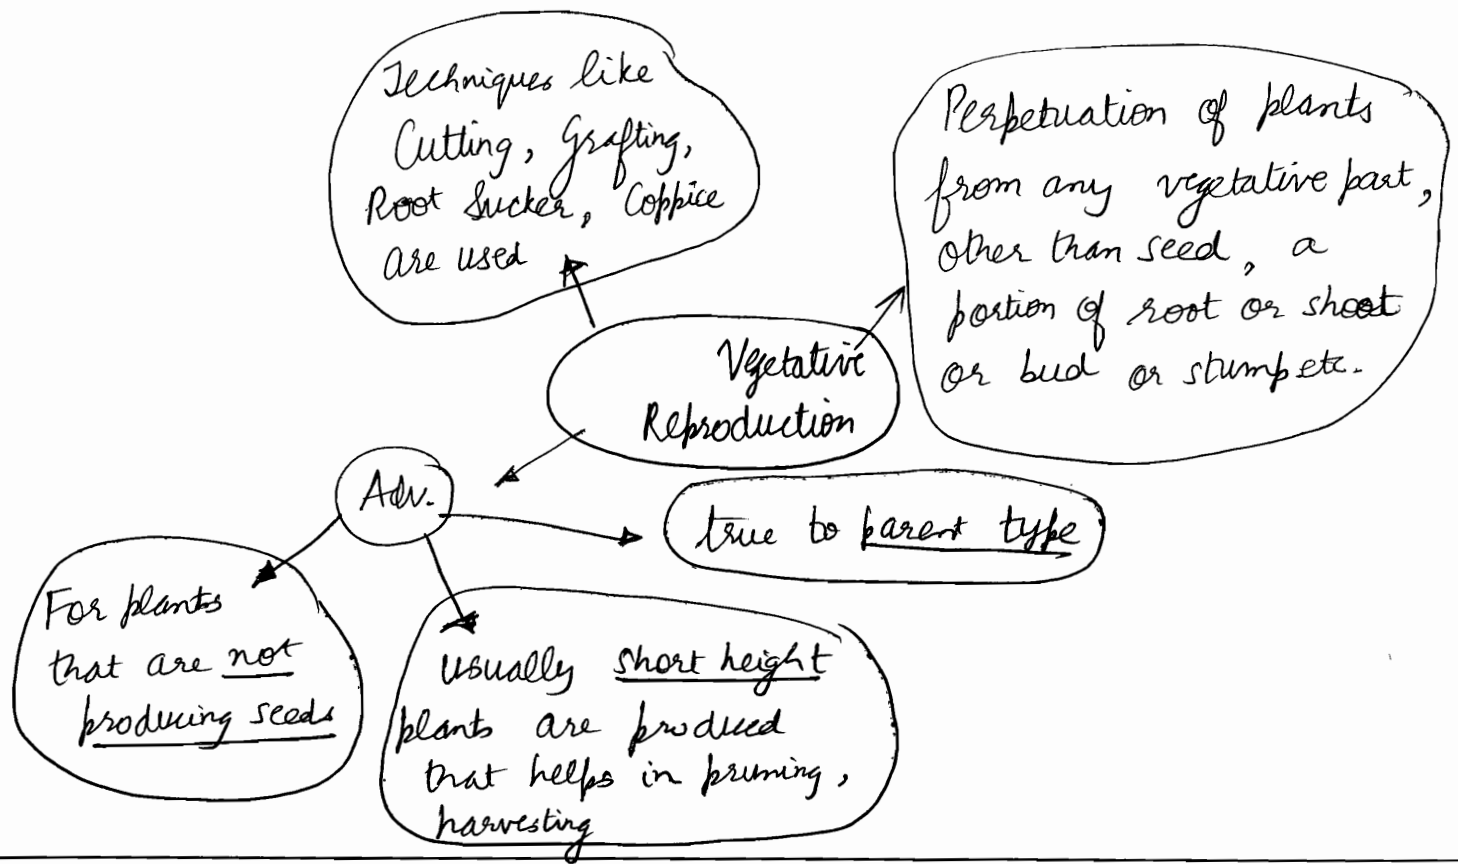 Techniques like
Cutting, Grafting,
Root Sucker, Coppice
are used
Perpetuation of plants
from any vegetative part,
other than seed, a
portion of root or shoot
or bud or stump etc.
Vegetative
Reproduction
Adv.
true to parent type
For plants
that are not
producing seeds
usually short height
plants are produced
that helps in pruning,
harvesting